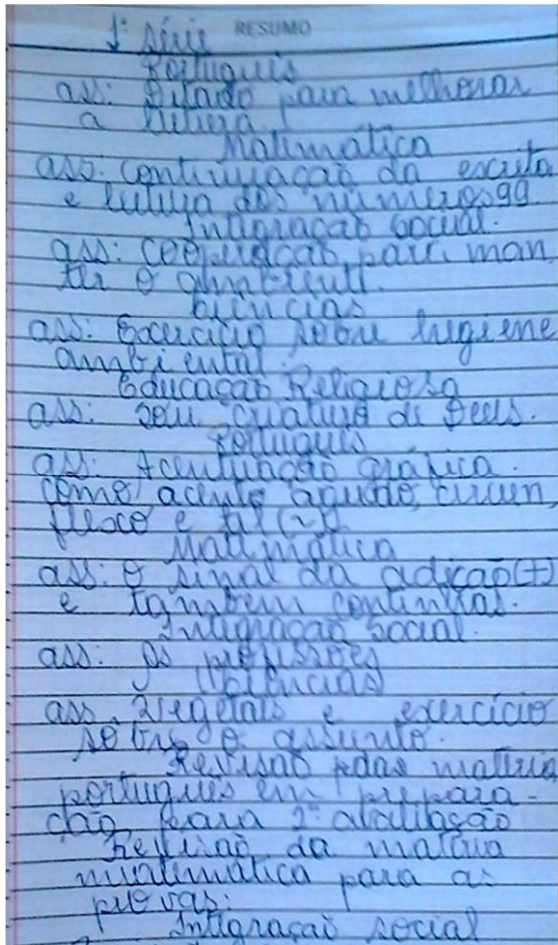 RESUMO
1ª série
Português
ass: Ditado para melhorar
a leitura.
Matimática
ass: continuação da escrita
e leitura dos números 99.
Integração social.
ass: Cooperação para man
ter o ambiente.
Ciências
ass: Exercício sobre higiene
ambiental.
Educação Religiosa
ass: sou criatura de Deus.
Português
ass: Acentuação gráfica.
como acento agudo, circun
flexo e til (~).
Matimática
ass: O sinal da adição (+)
e também continhas.
Integração social.
ass: As profissões
Ciências
ass. Vegetais e exercício
sobre o assunto.
Revisão matéria
português em prepara-
ção para 2ª avaliação
Revisão da matéria
para as
provas.
Integração social